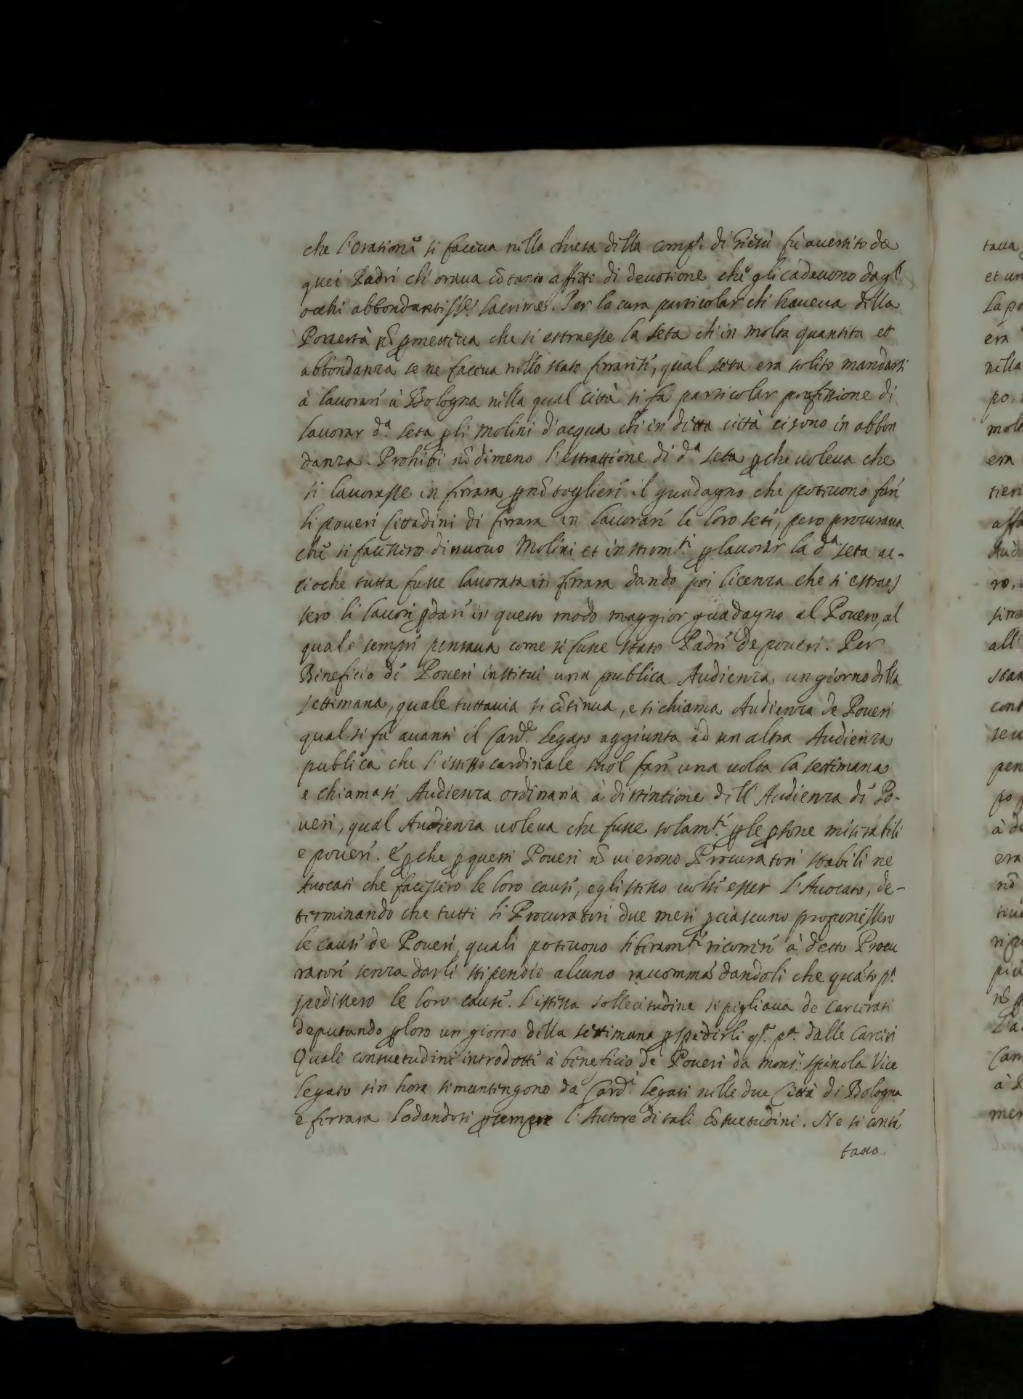 che l'oratione si faceua nella chiesa della comp.ᵃ di Giesù fu auertito da
quei Padri ch'oraua cõ tanto affetto di deuotione che gli cadeuono dagl'
occhi abbondantisse lacrime. Per la cura particolar ch'haueua della
Pouertà nõ ꝑmetteua che si estraesse la seta ch'in molta quantita et
abbondanza se ne faceua nello stato ferrarese, qual seta era solito mandarsi
à lauorar à Bologna nella qual città si fà particolar professione di
lauorar d.ᵃ seta ꝑ li Molini d'acqua ch'in detta città ci sono in abbon
danza. Prohibi nõ dimeno l'estrattione di d.ᵃ seta ꝑche uoleua che
si lauorasse in ferrara ꝑ nõ toglierε il guadagno che poteuono fare
li poueri Cittadini di ferrara in lauorare le loro sete, pero procuraua
che si facessero di nuouo Molini et instrom.ᵗⁱ ꝑ lauorar la d.ᵃ seta ac-
cioche tutta fusse lauorata in ferrara dando poi licenza che si estraes
sero li lauori ꝑ dare in questo modo maggior guadagno al Pouero, al
quale sempre pensaua come se fusse stato Padre de poueri. Per
Beneficio de Poueri institui una publica Audienza un giorno della
settimana, quale tuttauia si cõtinua, e si chiama Audienza de Poueri
qual si fà auanti il Card.ᵉ legato aggiunta ad un altra Audienza
publica che l'istesso cardinale suol fare una uolta la settimana
e chiamasi Audienza ordinaria à distintione dell'Audienza de Po-
ueri, qual Audienza uoleua che fusse solam.ᵗᵉ ꝑ le ꝑsone miserabili
e pouere. E ꝑche ꝑ questi Poueri nõ ui erono Procuratori stabili ne
Auocati che facessero le loro cause, egli stesso uolse esser l'Auocato, de-
terminando che tutti li Procuratori due mesi ꝑ ciascuno proponessero
le cause de Poueri, quali poteuono liberam.ᵗᵉ ricorrere à detto Procu
ratore senza darli stipendio alcuno raccommãdandoli che quãto p.ᵃ
spedissero le loro cause. L'istessa sollecitudine si pigliaua de Carcerati
deputando ꝑ loro un giorno della settimana ꝑ spedirli q.ᵗᵒ p.ᵃ dalle Carceri
Quali consuetudini introdotte à beneficio de Poueri da Mons.ʳ Spinola Vice
legato sin hora si mantengono da Card.ˡⁱ legati nelle due Città di Bologna
e ferrara lodandosi ꝑ sempre l'Autore di tali cõsuetudini. Ne si conte